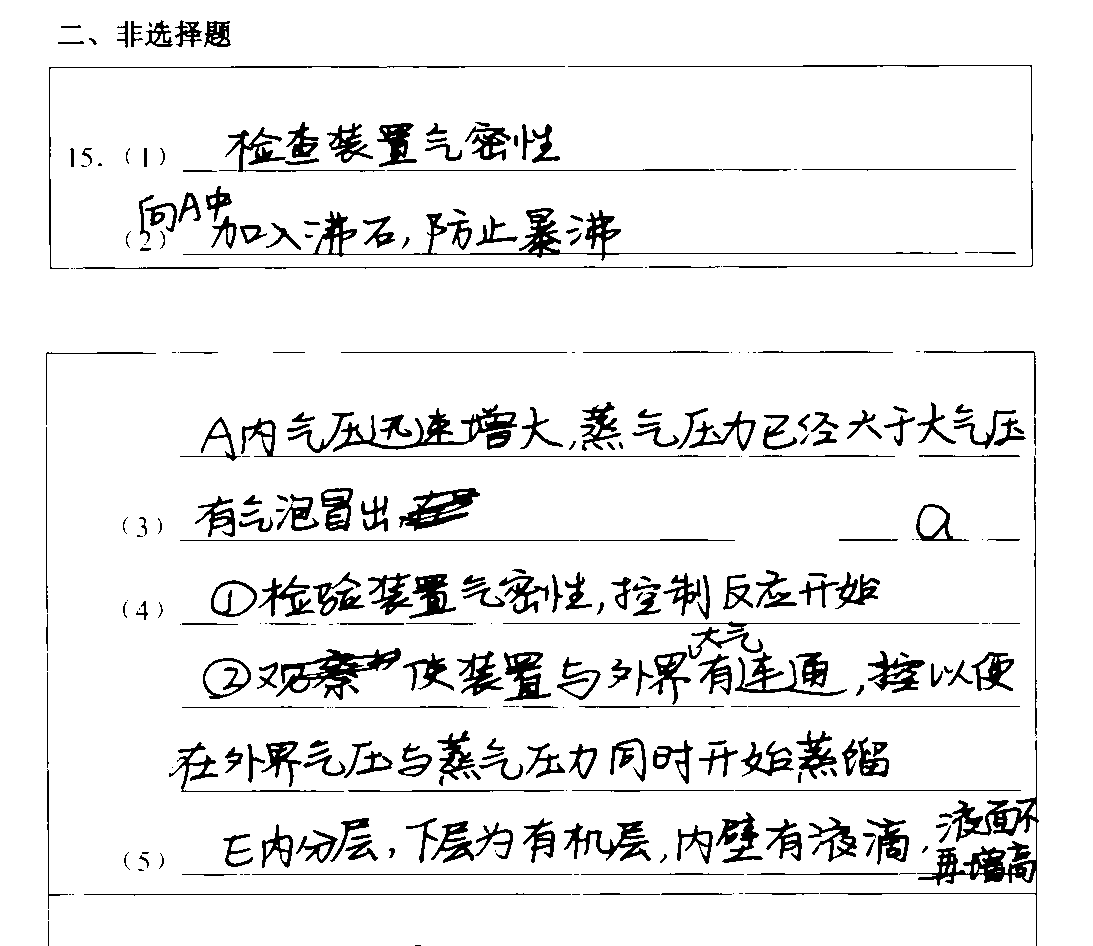 二、非选择题
15.（1）检查装置气密性
（2）向A中加入沸石,防止暴沸
A内气压迅速增大,蒸气压力已经大于大气压
（3）有气泡冒出 a
（4）①检验装置气密性,控制反应开始
②观察 使装置与外界大气有连通,控以便
在外界气压与蒸气压力同时开始蒸馏
（5）E内分层,下层为有机层,内壁有液滴,液面不
再增高